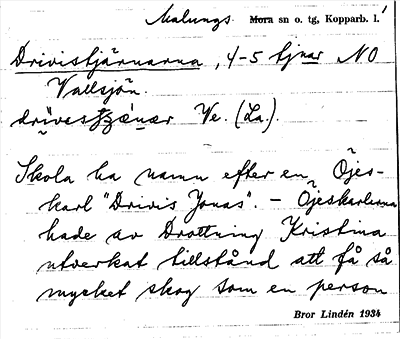 Malungs Mora sn o. tg, Kopparb. l.
Drivistjärnarna, 4-5 tjnar NO
Vallsjön.
Ve. (La.).
Skola ha namn efter en Öjes-
karl "Drivis Jonas". – Öjeskarlarna
hade av Drottning Kristina
utverkat tillstånd att få så
mycket skog som en person
Bror Lindén 1934